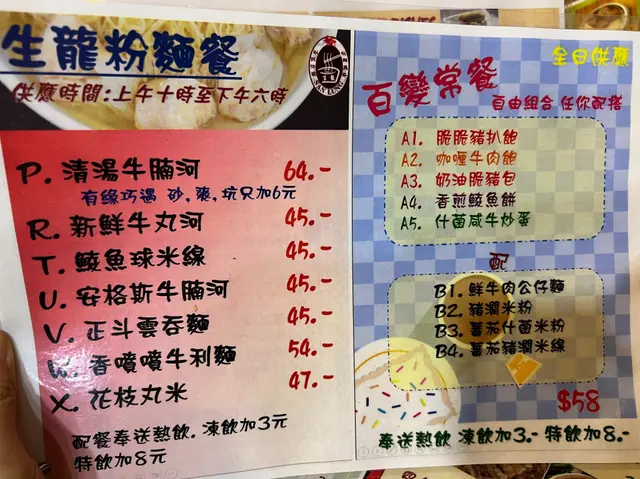 生龍粉麵餐
供應時間:上午十時至下午六時
P. 清湯牛腩河 64.-
有緣巧遇 砂,爽,坑只加6元
R. 新鮮牛丸河 45.-
T. 鯪魚球米線 45.-
U. 安格斯牛腩河 45.-
V. 正斗雲吞麵 45.-
W. 香噴噴牛利麵 54.-
X. 花枝丸米 47.-
配餐奉送熱飲. 凍飲加3元
特飲加8元
全日供應
百變常餐
自由組合 任你配搭
A1. 脆脆豬扒飽
A2. 咖喱牛肉飽
A3. 奶油脆豬包
A4. 香煎鯪魚餅
A5. 什菌咸牛炒蛋
配
B1. 鮮牛肉公仔麵
B2. 豬潤米粉
B3. 蕃茄什菌米粉
B4. 蕃茄豬潤米線
$58
奉送熱飲 凍飲加3.- 特飲加8.-